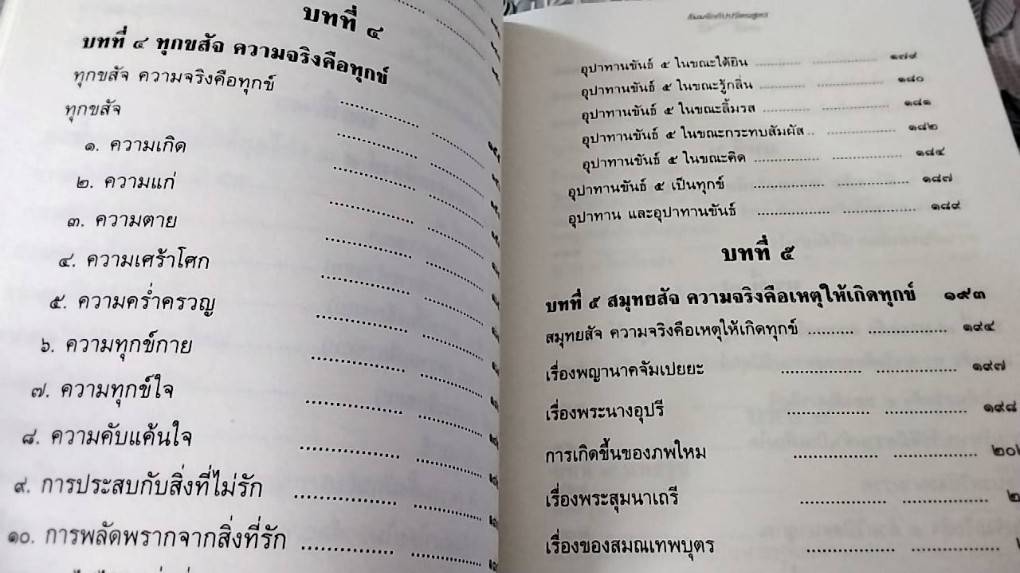 บทที่ ๔
บทที่ ๔ ทุกขสัจ ความจริงคือทุกข์
ทุกขสัจ ความจริงคือทุกข์
ทุกขสัจ
๑. ความเกิด
๒. ความแก่
๓. ความตาย
๔. ความเศร้าโศก
๕. ความคร่ำครวญ
๖. ความทุกข์กาย
๗. ความทุกข์ใจ
๘. ความคับแค้นใจ
๙. การประสบกับสิ่งที่ไม่รัก
๑๐. การพลัดพรากจากสิ่งที่รัก
อุปาทานขันธ์ ๕ ในขณะได้ยิน ๑๗๙
อุปาทานขันธ์ ๕ ในขณะรู้กลิ่น ๑๘๐
อุปาทานขันธ์ ๕ ในขณะลิ้มรส ๑๘๑
อุปาทานขันธ์ ๕ ในขณะกระทบสัมผัส ๑๘๒
อุปาทานขันธ์ ๕ ในขณะคิด ๑๘๔
อุปาทานขันธ์ ๕ เป็นทุกข์ ๑๘๗
อุปาทาน และอุปาทานขันธ์ ๑๘๙
บทที่ ๕
บทที่ ๕ สมุทยสัจ ความจริงคือเหตุให้เกิดทุกข์ ๑๙๓
สมุทยสัจ ความจริงคือเหตุให้เกิดทุกข์ ๑๙๔
เรื่องพญานาคจัมเปยยะ ๑๙๗
เรื่องพระนางอุปรี ๑๙๘
การเกิดขึ้นของภพใหม่
เรื่องพระสุมนาเถรี
เรื่องของสมณเทพบุตร